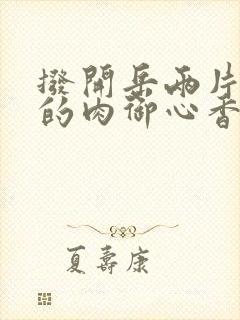 撥開岳兩片
的肉御心香
夏壽康